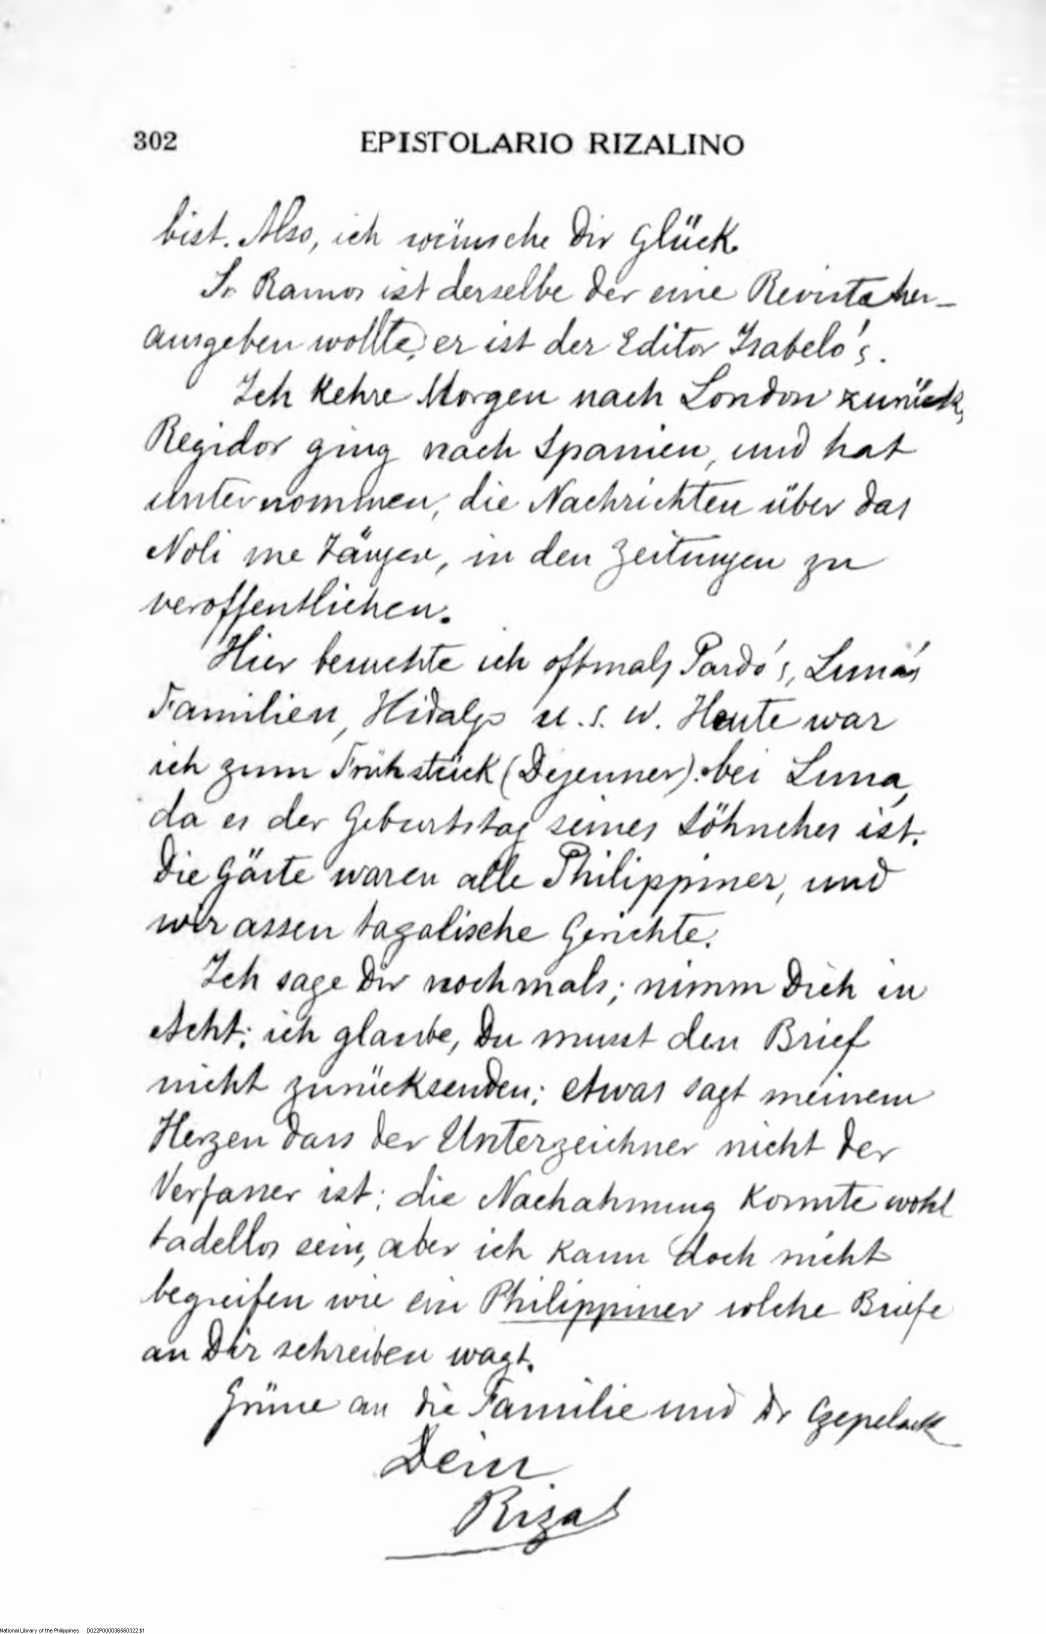 302 EPISTOLARIO RIZALINO
bist. Also, ich wünsche Dir Glück.
Sr Ramos ist derselbe der eine Revista her-
ausgeben wollte, er ist der Editor Isabelo's.
Ich kehre Morgen nach London zurück,
Regidor ging nach Spanien, und hat
unternommen, die Nachrichten über das
Noli me Tángere, in den Zeitungen zu
veroffentlichen.
Hier besuchte ich oftmals Pardo's, Luna's
Familien, Hidalgo u.s.w. Heute war
ich zum Frühstück (Dejeuner) bei Luna,
da es der Geburtstag seines Söhnches ist.
Die Gäste waren alle Philippiner, und
wir assen tagalische Gerichte.
Ich sage Dir nochmals; nimm Dich in
Acht; ich glaube, Du musst den Brief
nicht zurücksenden; etwas sagt meinem
Herzen dass der Unterzeichner nicht der
Verfasser ist; die Nachahmung konnte wohl
tadellos sein, aber ich kann doch nicht
begreifen wie ein Philippiner solche Briefe
an Dir schreiben wagt.
Grüsse an die Familie und Dr Czepelack
Dein
Rizal
National Library of the Philippines